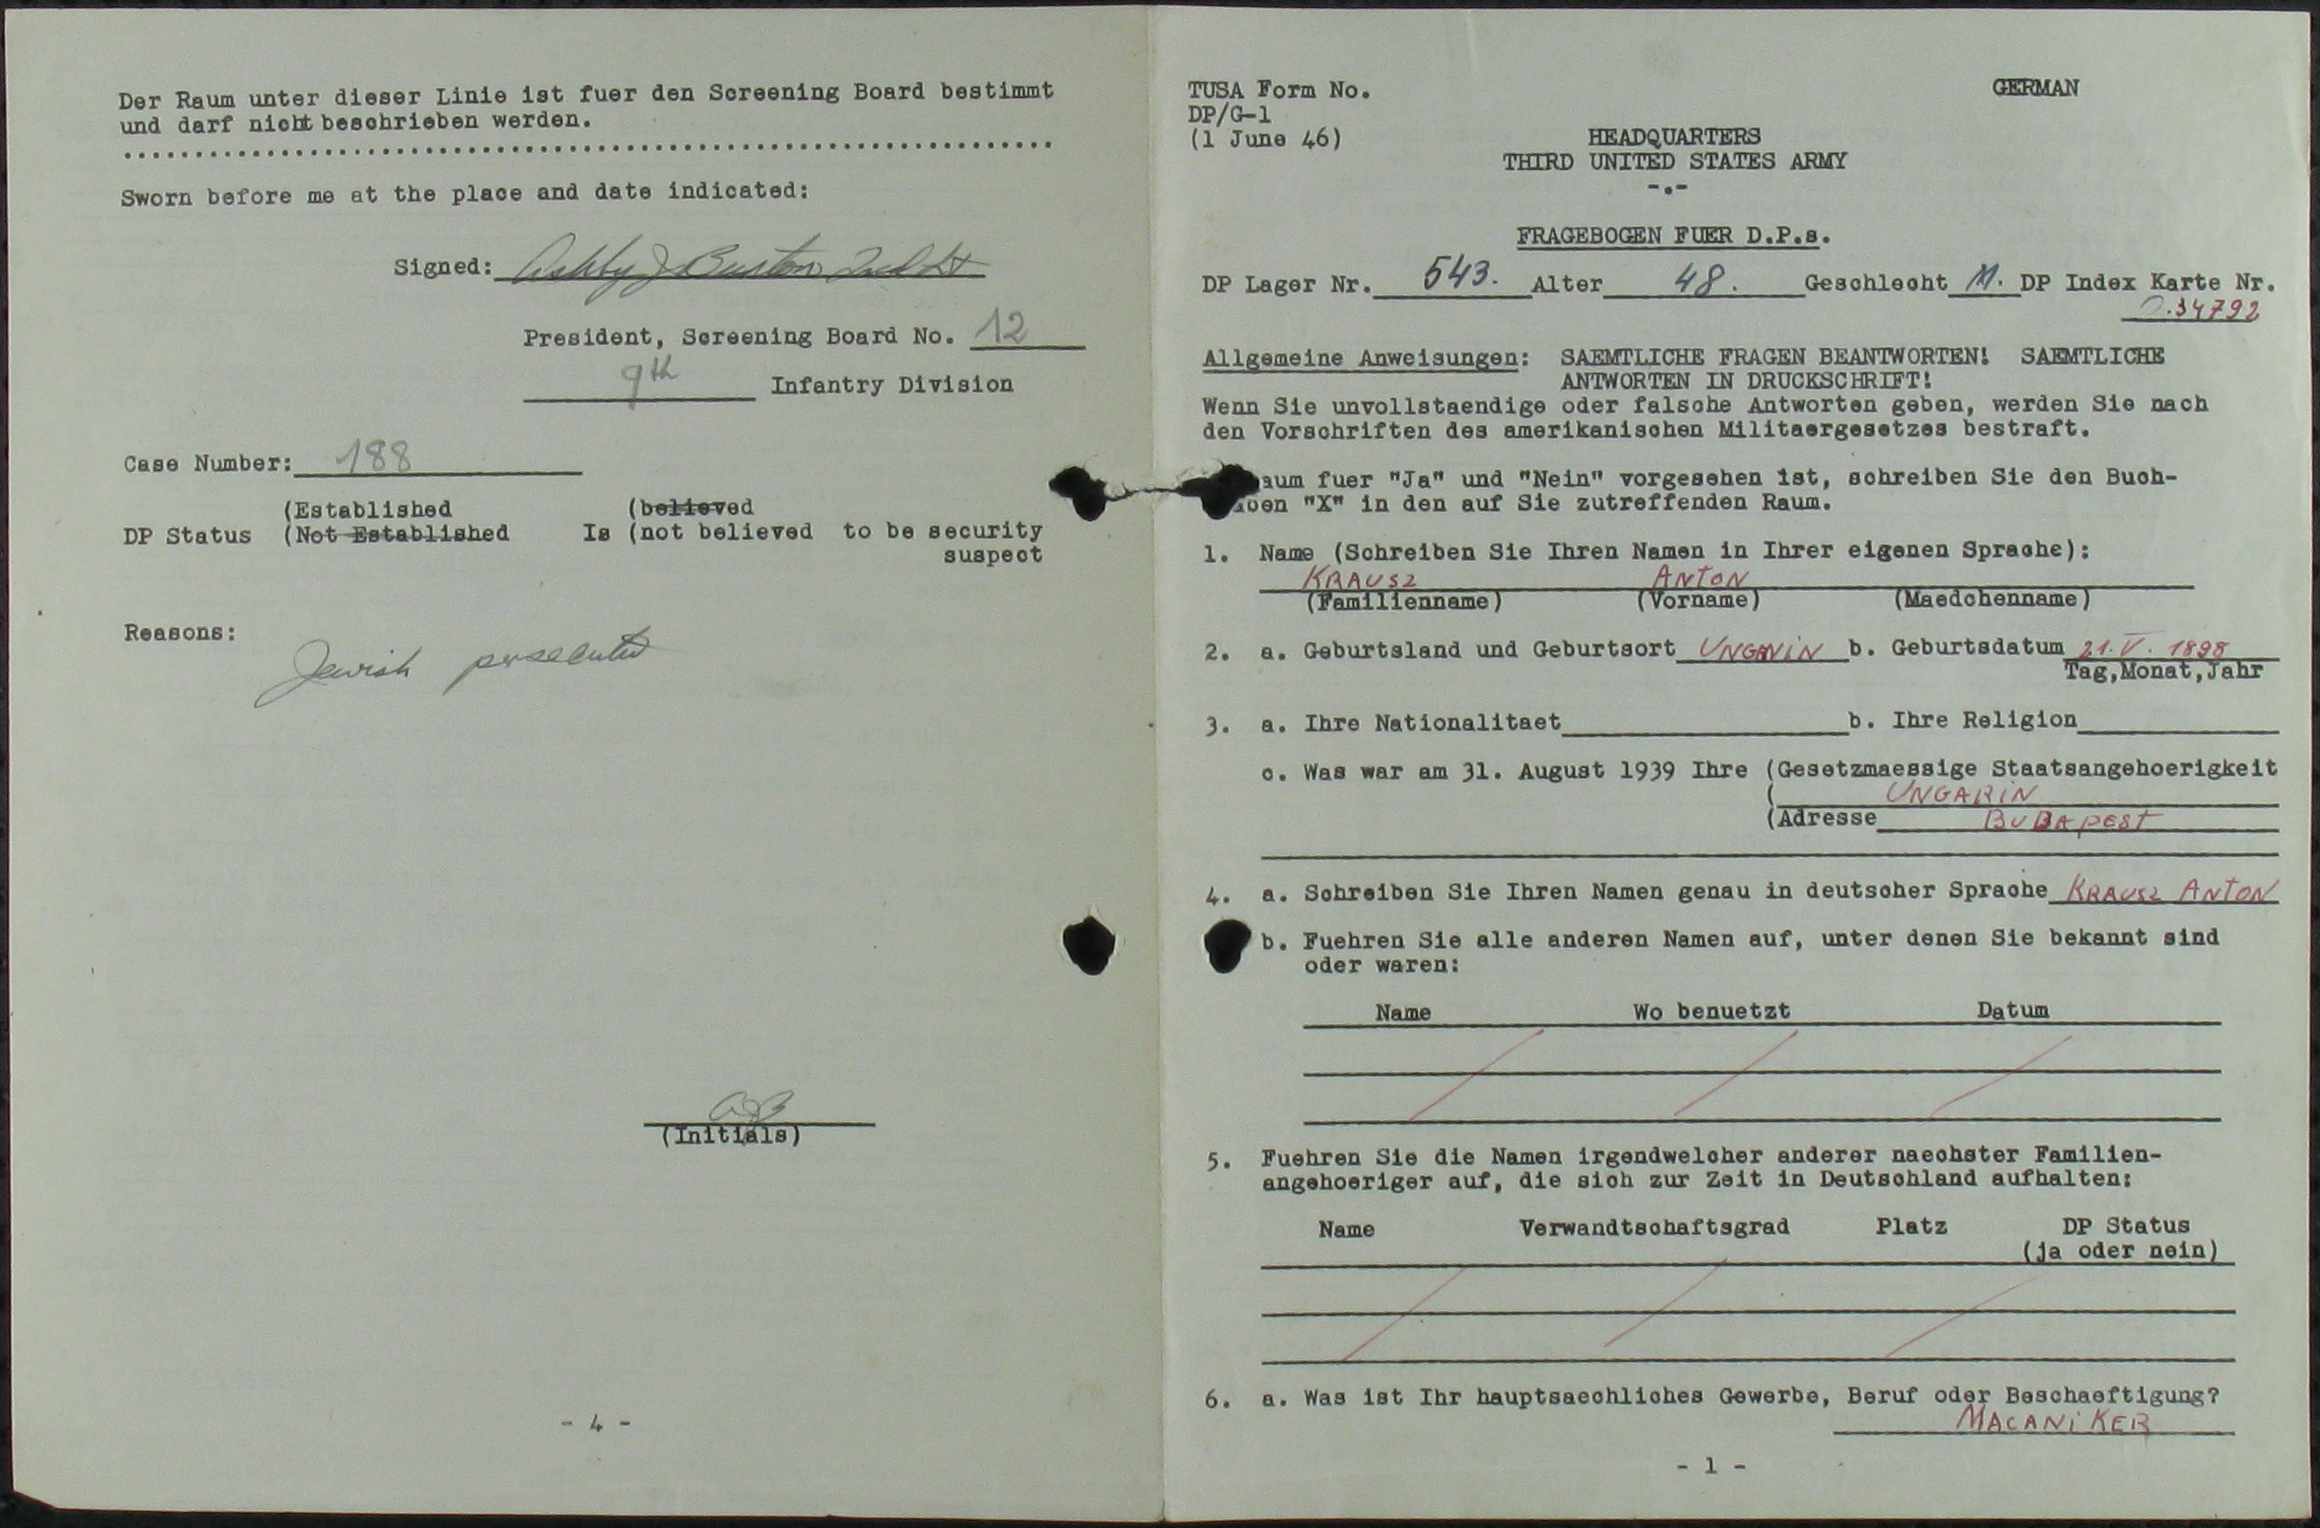 Der Raum unter dieser Linie ist fuer den Screening Board bestimmt
und darf nicht beschrieben werden.
Sworn before me at the place and date indicated:
Signed: Ashby J Burton 2nd Lt
President, Screening Board No. 12
9th Infantry Division
Case Number: 188
(Established (believed
DP Status (Not Established Is (not believed to be security
suspect
Reasons:
Jewish persecuted
AJB
(Initials)
- 4 -
TUSA Form No. GERMAN
DP/G-1
(1 June 46) HEADQUARTERS
THIRD UNITED STATES ARMY
-.-
FRAGEBOGEN FUER D.P.s.
DP Lager Nr. 543. Alter 48. Geschlecht M. DP Index Karte Nr.
.34792
Allgemeine Anweisungen: SAEMTLICHE FRAGEN BEANTWORTEN! SAEMTLICHE
ANTWORTEN IN DRUCKSCHRIFT!
Wenn Sie unvollstaendige oder falsche Antworten geben, werden Sie nach
den Vorschriften des amerikanischen Militaergesetzes bestraft.
aum fuer "Ja" und "Nein" vorgesehen ist, schreiben Sie den Buch-
ben "X" in den auf Sie zutreffenden Raum.
1. Name (Schreiben Sie Ihren Namen in Ihrer eigenen Sprache):
KRAUSZ ANTON
(Familienname) (Vorname) (Maedchenname)
2. a. Geburtsland und Geburtsort b. Geburtsdatum 21. V. 1898
Tag,Monat,Jahr
3. a. Ihre Nationalitaet b. Ihre Religion
c. Was war am 31. August 1939 Ihre (Gesetzmaessige Staatsangehoerigkeit
( UNGARIN
(Adresse BUDAPEST
4. a. Schreiben Sie Ihren Namen genau in deutscher Sprache KRAUSZ ANTON
b. Fuehren Sie alle anderen Namen auf, unter denen Sie bekannt sind
oder waren:
Name Wo benuetzt Datum
5. Fuehren Sie die Namen irgendwelcher anderer naechster Familien-
angehoeriger auf, die sich zur Zeit in Deutschland aufhalten:
Name Verwandtschaftsgrad Platz DP Status
(ja oder nein)
6. a. Was ist Ihr hauptsaechliches Gewerbe, Beruf oder Beschaeftigung?
MACANiKER
- 1 -